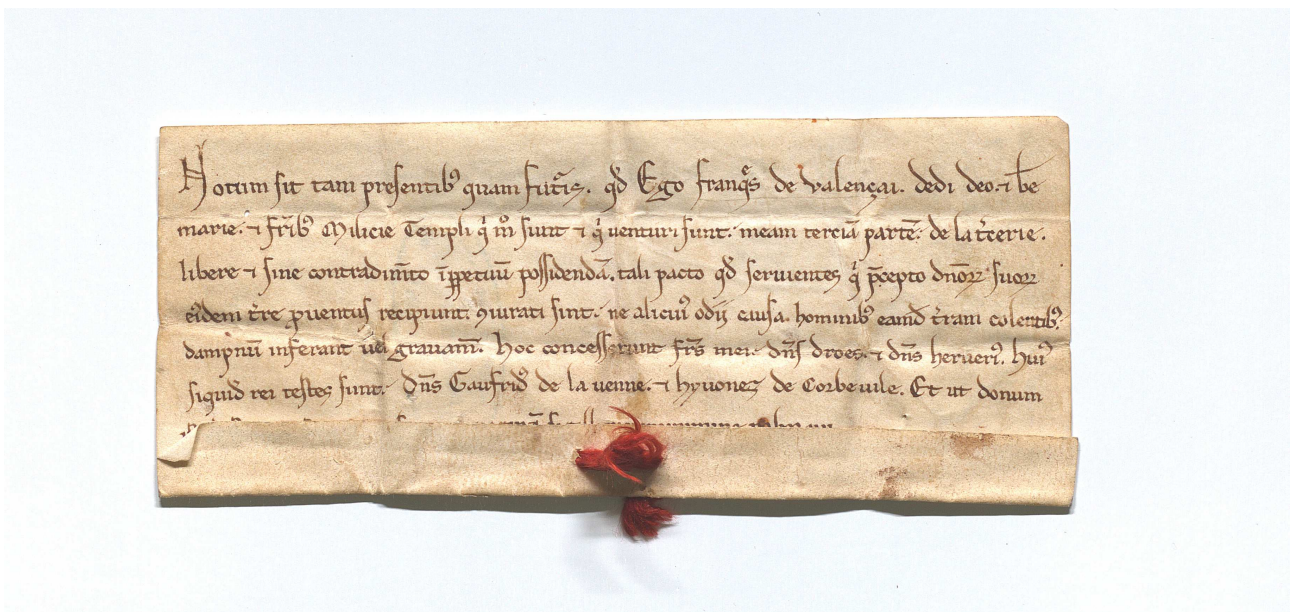 Notum sit tam presentibꝰ quam futͣis. qd̄ Ego franqͦs de valençai. dedi deo. ⁊ bē
marie. ⁊ fr̄ibꝰ Milicie Templi qͥ m̊ sunt ⁊ qͥ venturi sunt. meam terciā partē. de la t̄cerie.
libere ⁊ sine contradim̄to īꝑpetuū possidendā. tali pacto qd̄ seruientes qͥ p̄cepto dn̄oꝝ suoꝝ
eidem t̄re ꝓuentus recipiunt. ꝯiurati sint. ne alicuiꝰ odij causa. hominibꝰ eamd̄ t̄ram colentibꝰ.
dampnū inferant uel grauam̄. hoc concesserunt fr̄s mei. dn̄s droes. ⁊ dn̄s herueiꝰ. huiꝰ
siquid rei testes sunt. dn̄s Gaufridꝰ de la uenne. ⁊ hyuones de Corbeuile. Et ut donum